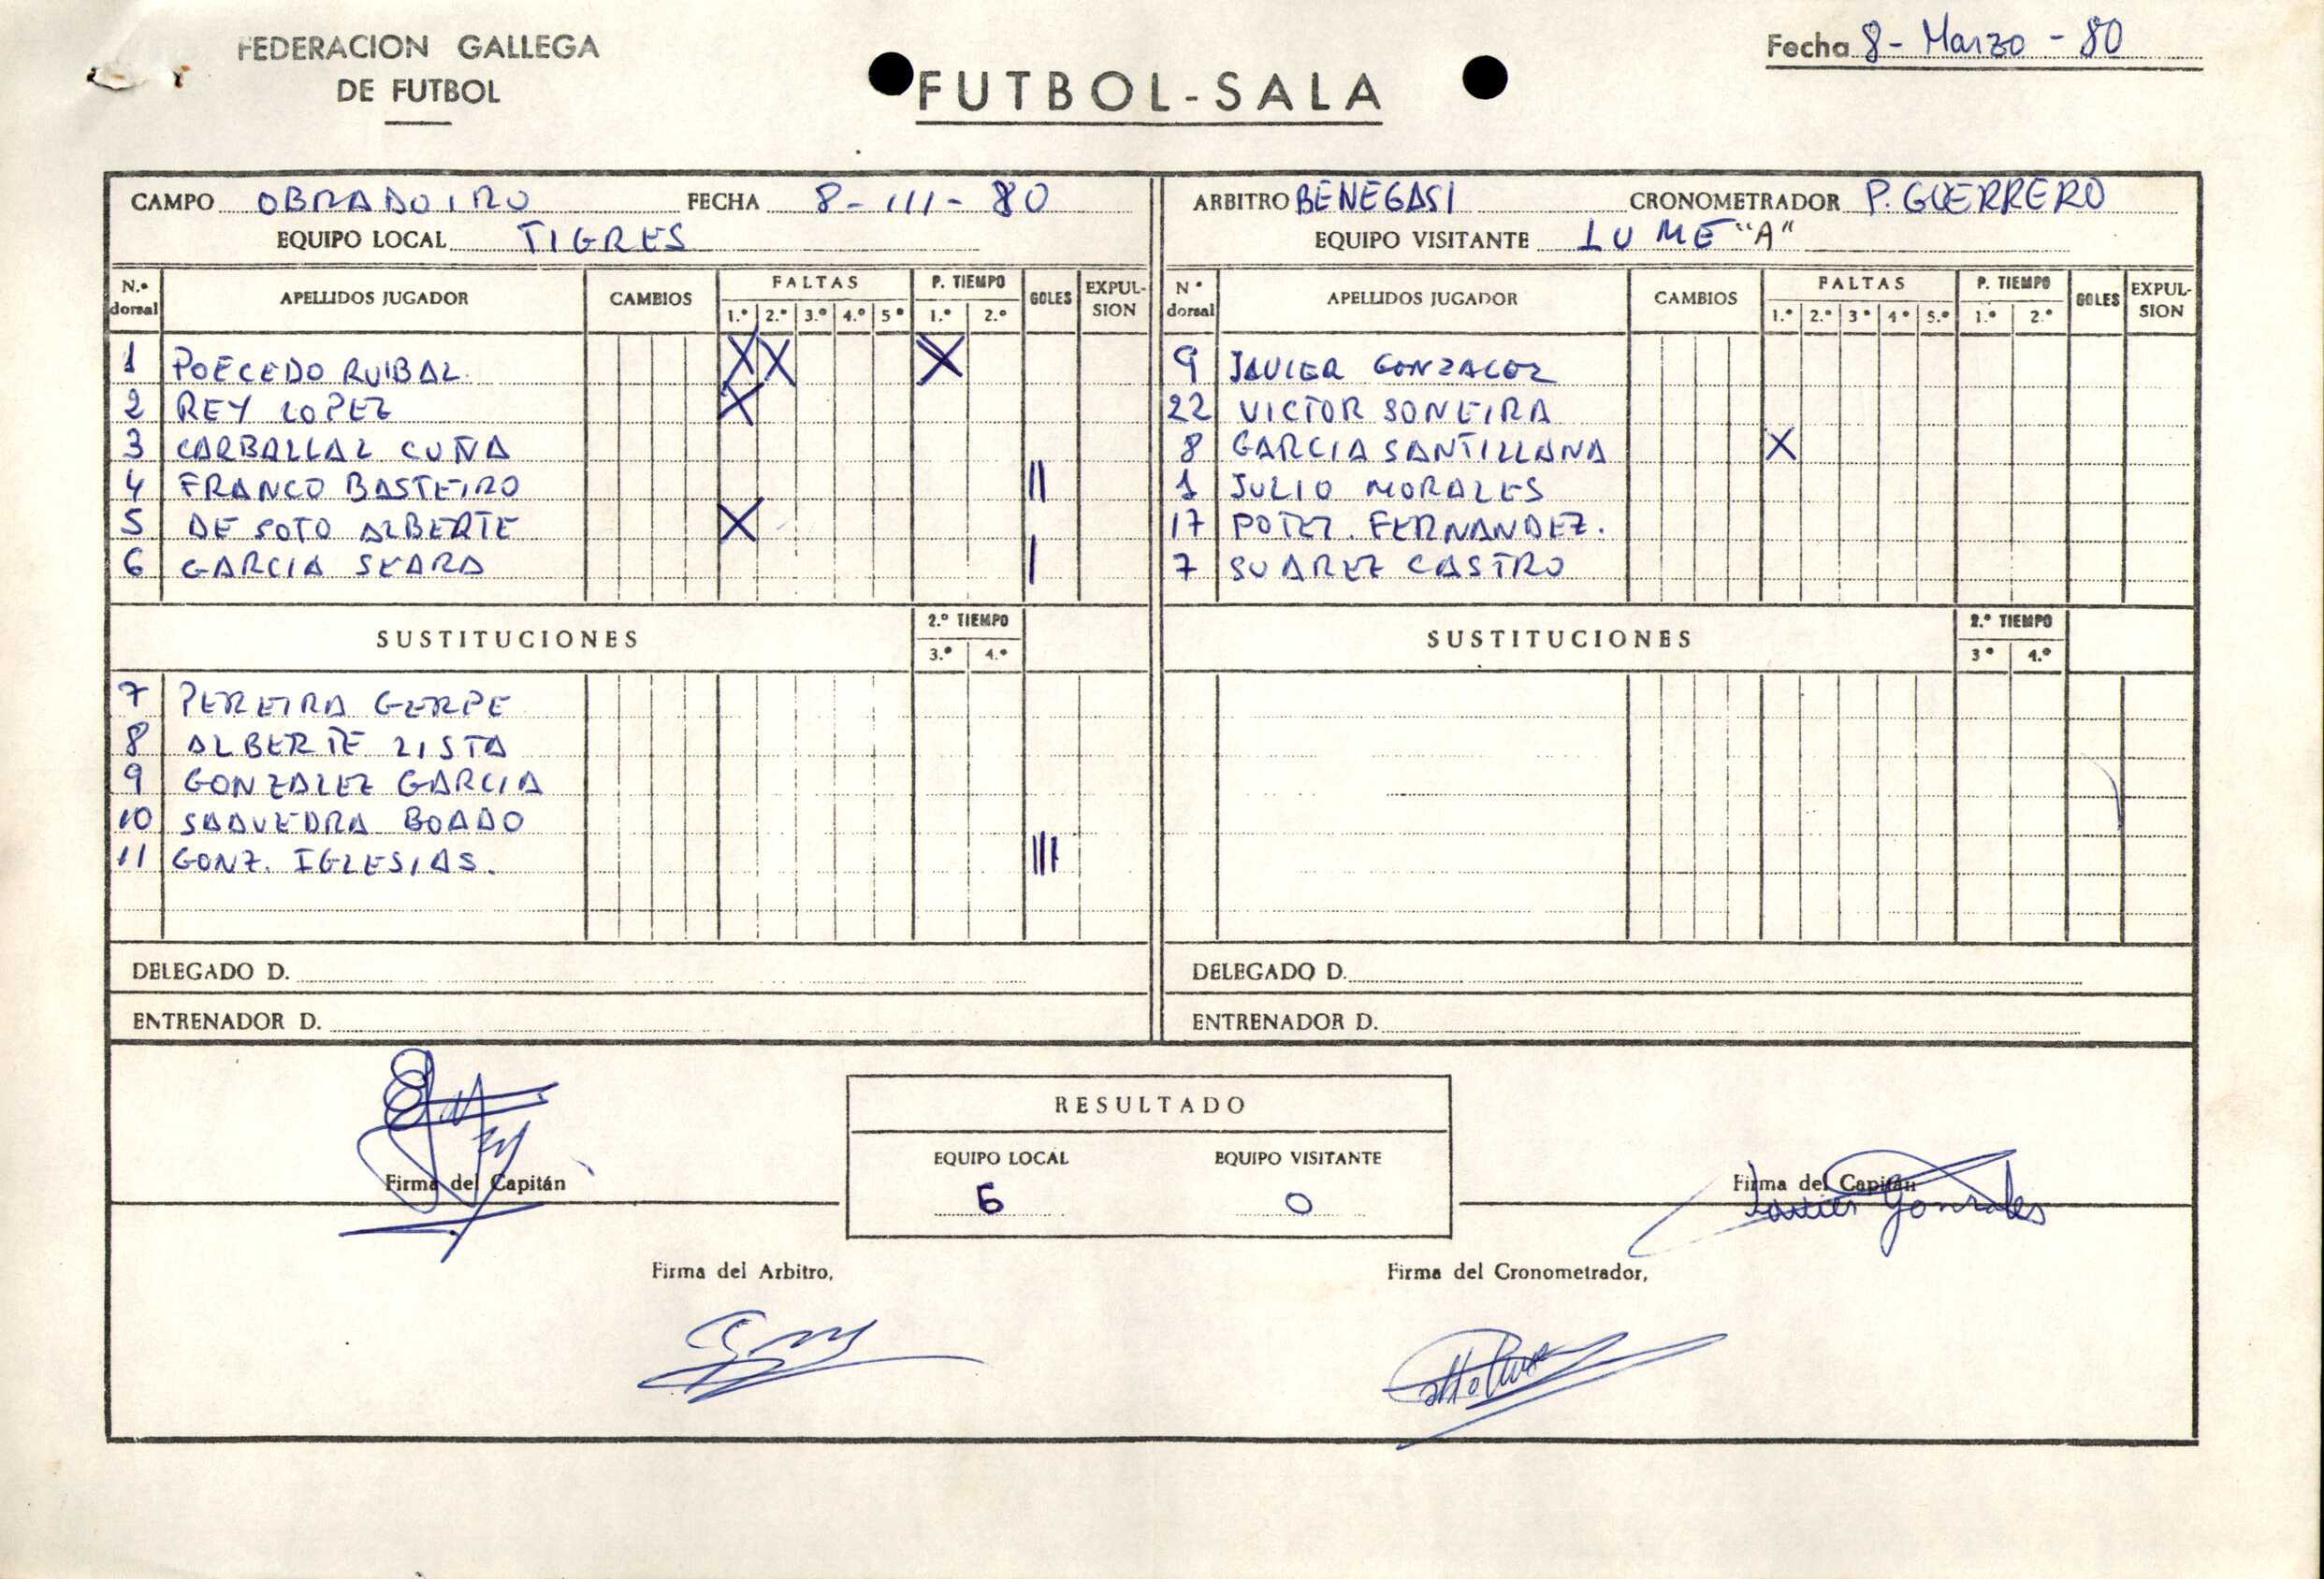 FEDERACION GALLEGA
DE FUTBOL
FUTBOL-SALA
Fecha 8- Marzo - 80
CAMPO OBRADOIRO FECHA 8-III-80
EQUIPO LOCAL TIGRES
N.º dorsal APELLIDOS JUGADOR CAMBIOS FALTAS 1.º 2.º 3.º 4.º 5º P. TIEMPO 1.º 2.º GOLES EXPULSION
1 POECEDO RUIBAL X X X
2 REY LOPEZ X
3 CARBALLAL CUÑA
4 FRANCO BASTEIRO II
5 DE SOTO ALBERTE X
6 GARCIA SEARA I
SUSTITUCIONES 2.º TIEMPO 3.º 4.º
7 PEREIRA GERPE
8 ALBERTE LISTA
9 GONZALEZ GARCIA
10 SAAVEDRA BOADO
11 GONZ. IGLESIAS. III
DELEGADO D.
ENTRENADOR D.
ARBITRO BENEGASI CRONOMETRADOR P. GUERRERO
EQUIPO VISITANTE LUME "A"
Nº dorsal APELLIDOS JUGADOR CAMBIOS FALTAS 1.º 2.º 3º 4º 5.º P. TIEMPO 1.º 2.º GOLES EXPULSION
9 JAVIER GONZALEZ
22 VICTOR SONEIRA
8 GARCIA SANTILLANA X
1 JULIO MORALES
17 FERNANDEZ.
7 SUAREZ CASTRO
SUSTITUCIONES 2.º TIEMPO 3º 4.º
DELEGADO D.
ENTRENADOR D.
RESULTADO
EQUIPO LOCAL EQUIPO VISITANTE
6 0
Firma del Capitán
Firma del Capitán
Javier Gonzales
Firma del Arbitro,
Firma del Cronometrador,